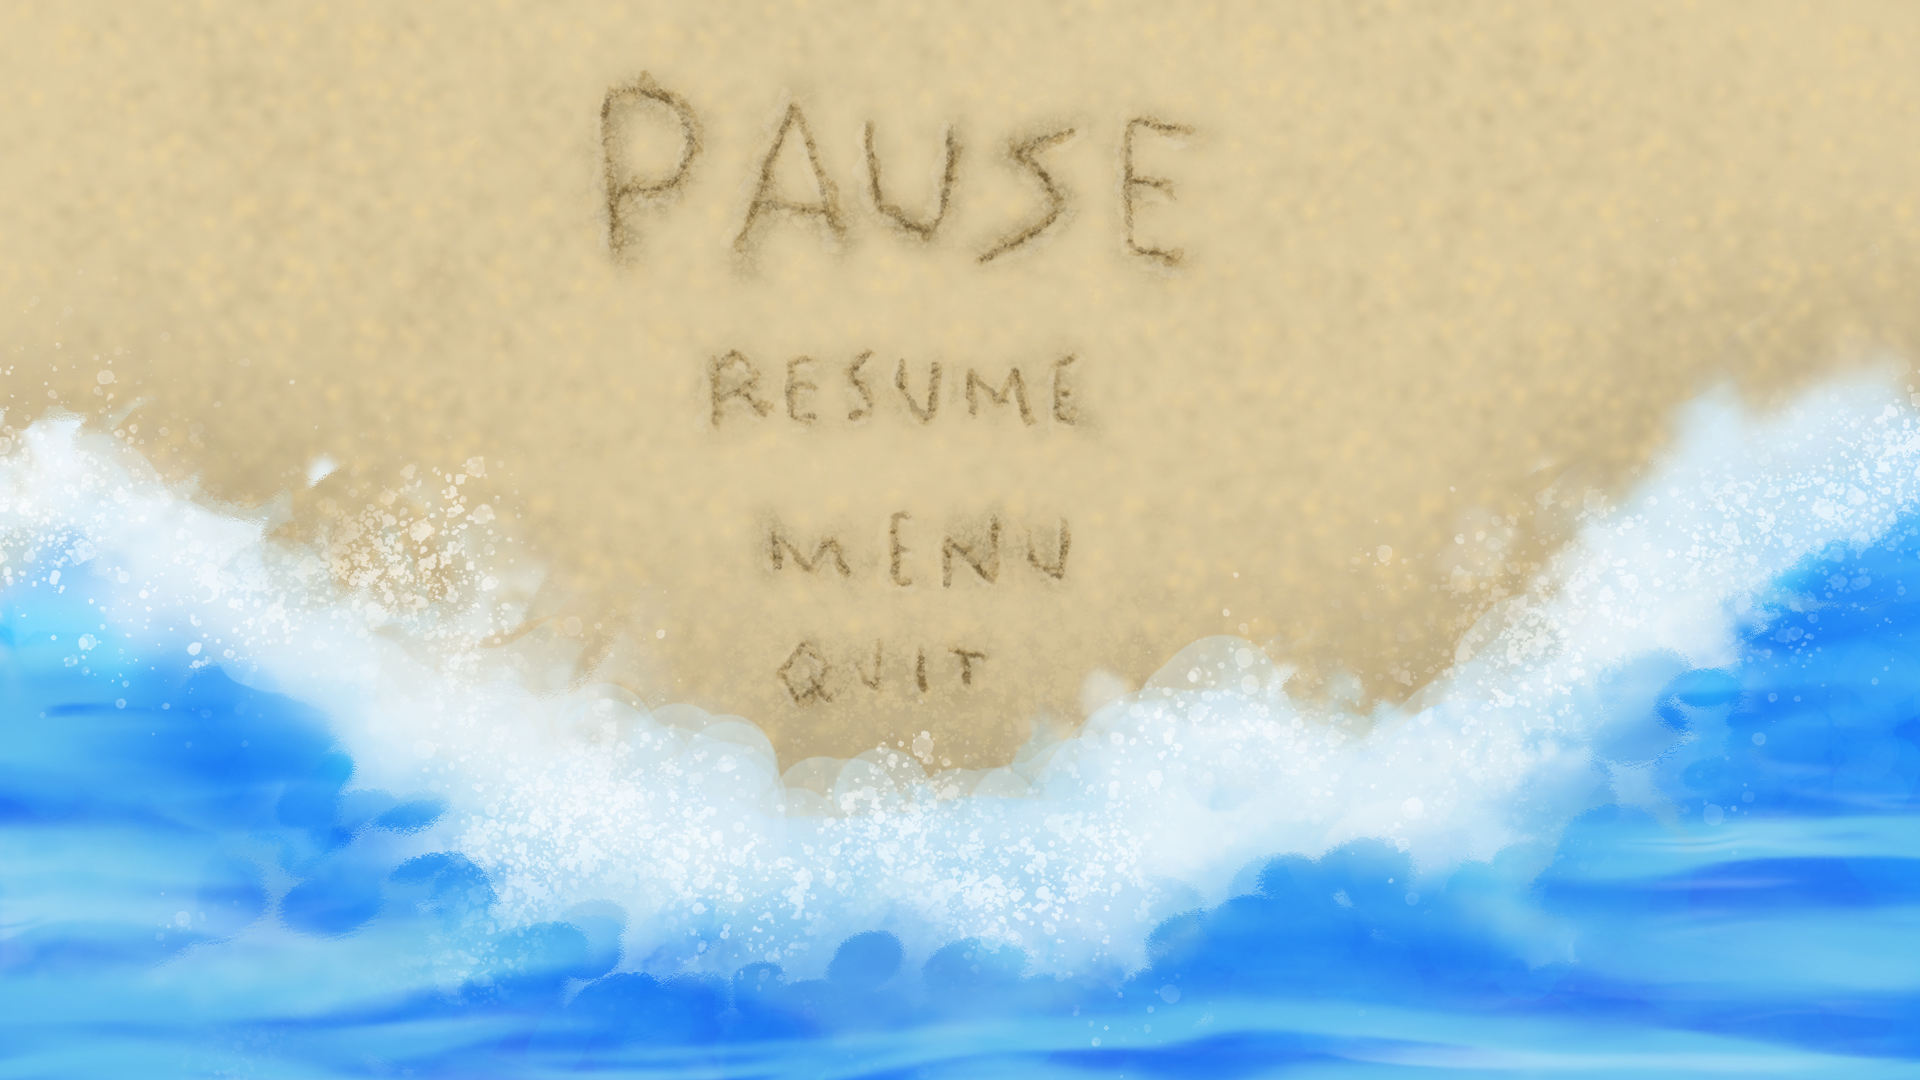 PAUSE
RESUME
MENU
QUIT